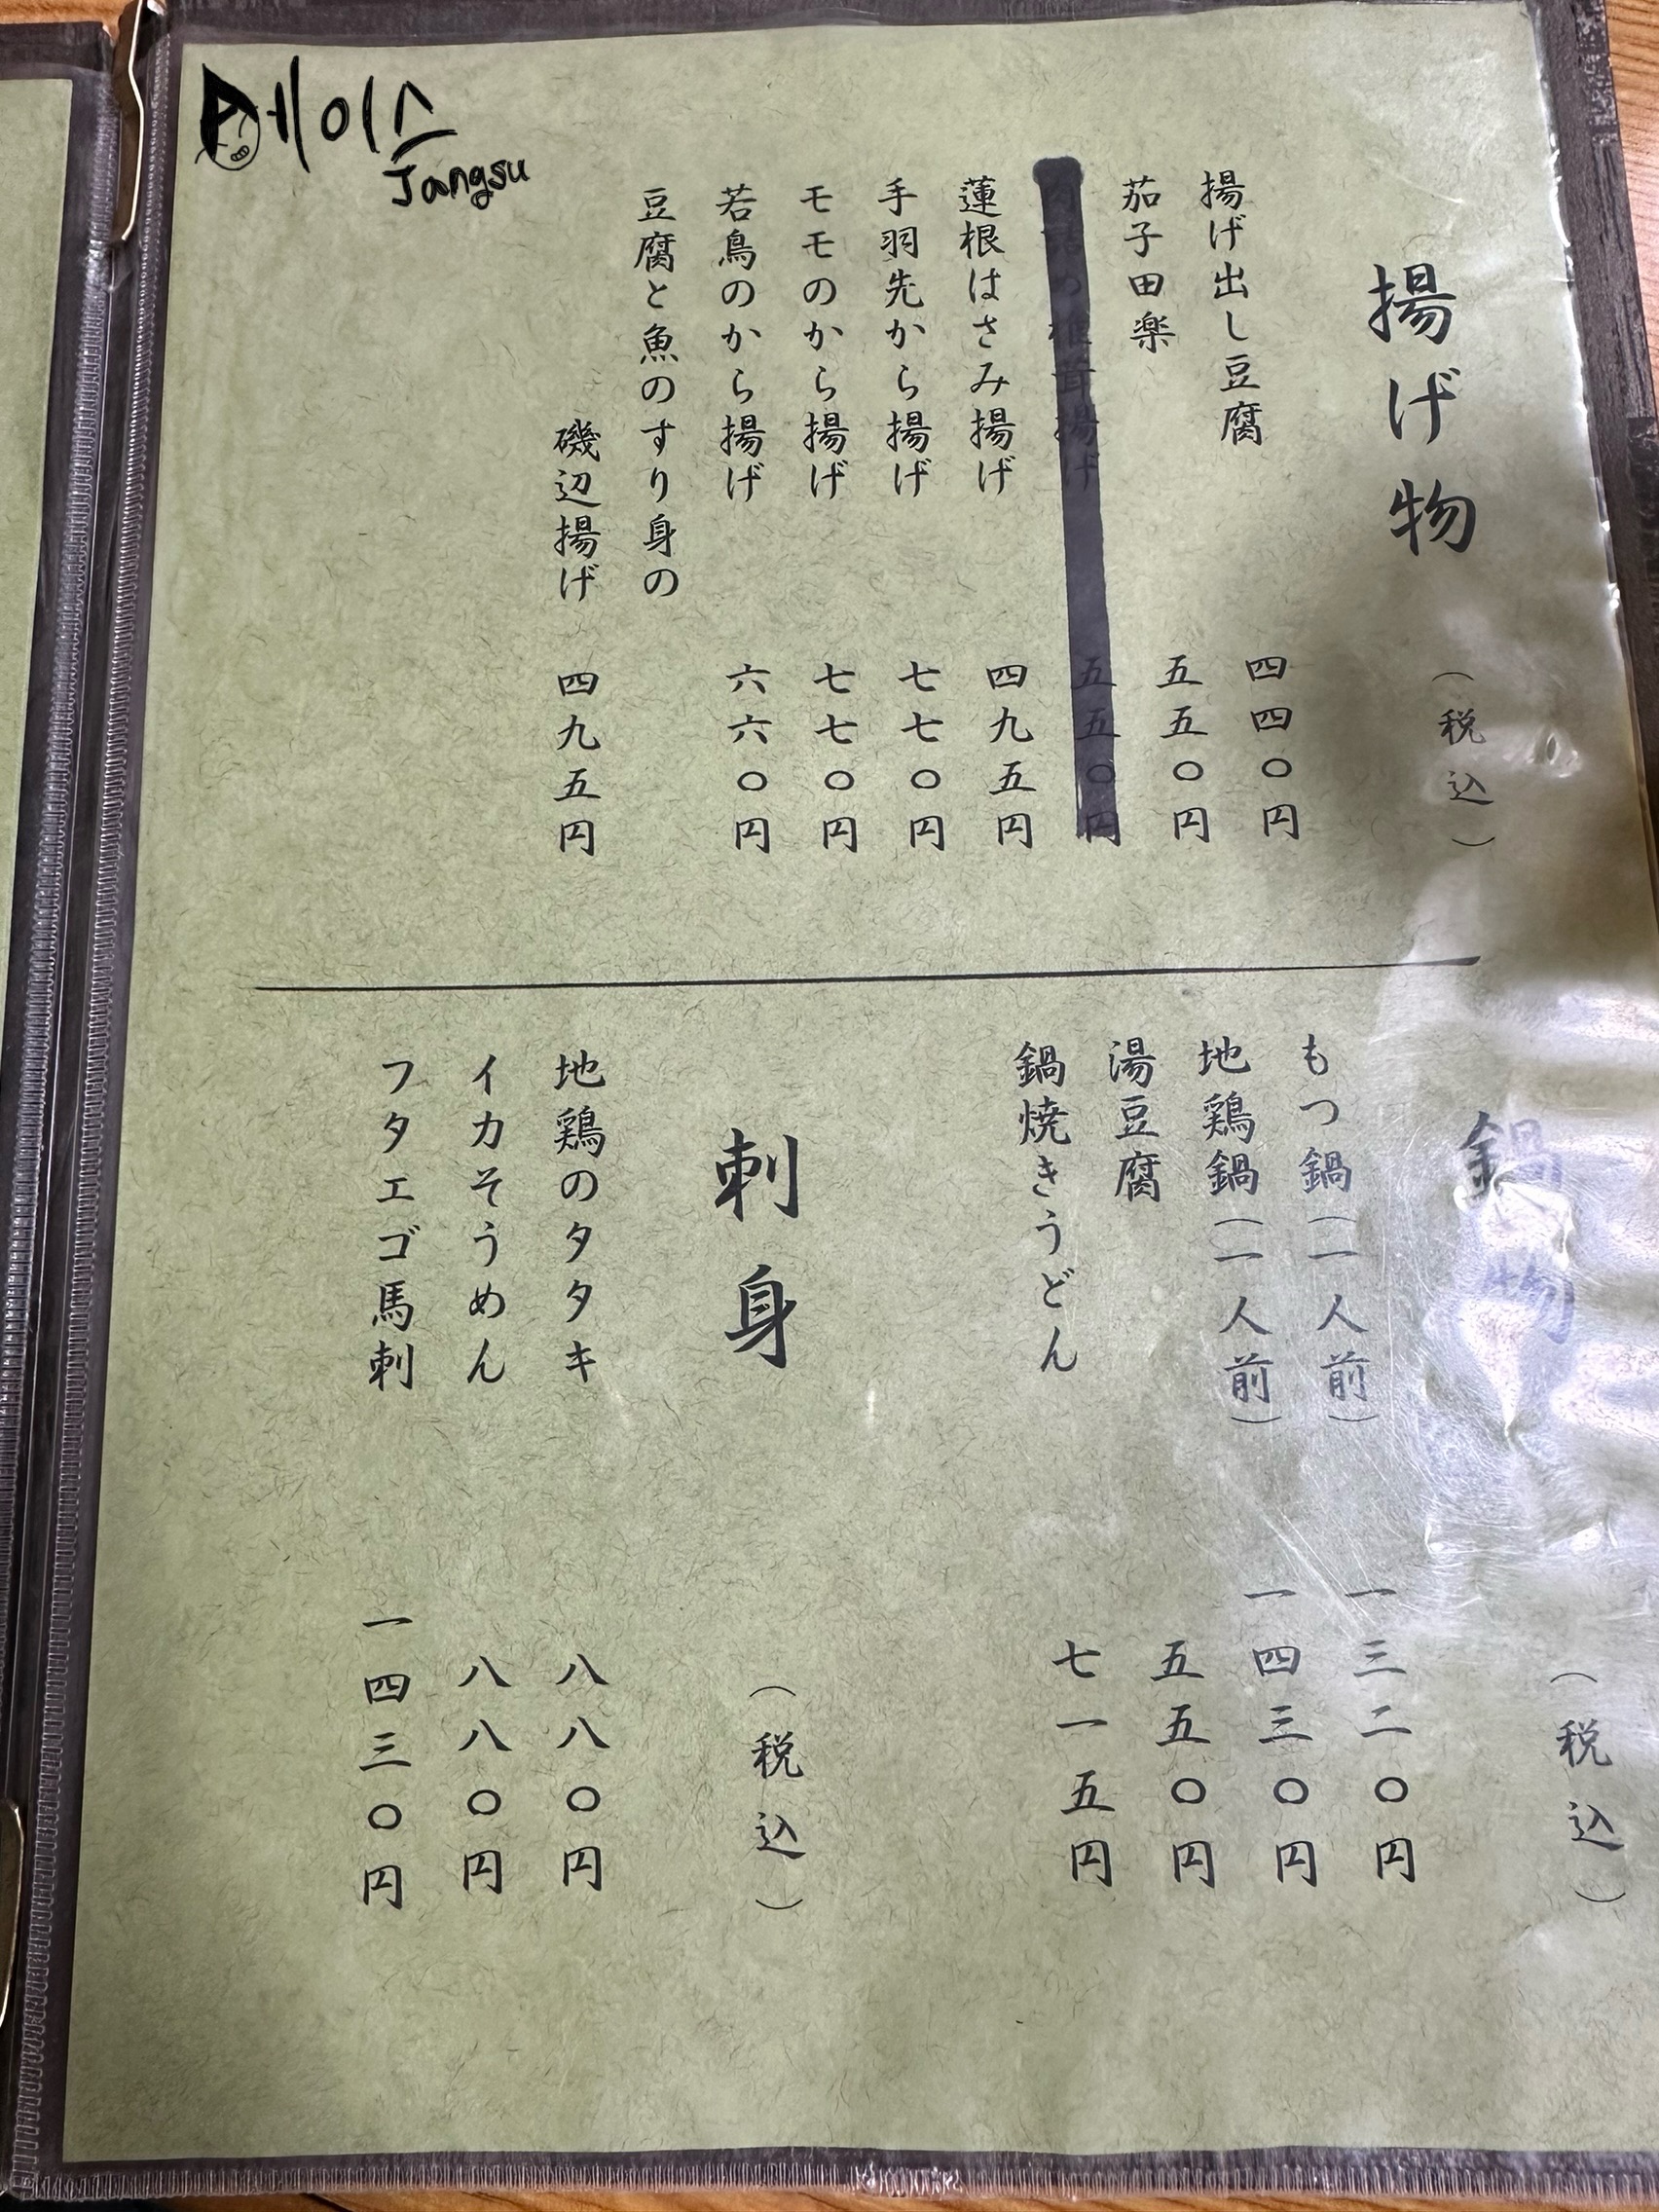 에이스
Jangsu
揚げ物
(税込)
揚げ出し豆腐 四四〇円
茄子田楽 五五〇円
揚げ 五五〇円
蓮根はさみ揚げ 四九五円
手羽先から揚げ 七七〇円
モモのから揚げ 七七〇円
若鳥のから揚げ 六六〇円
豆腐と魚のすり身の
磯辺揚げ 四九五円
鍋物
(税込)
もつ鍋(一人前) 一三二〇円
地鶏鍋(一人前) 一四三〇円
湯豆腐 五五〇円
鍋焼きうどん 七一五円
刺身
(税込)
地鶏のタタキ 八八〇円
イカそうめん 八八〇円
フタエゴ馬刺 一四三〇円